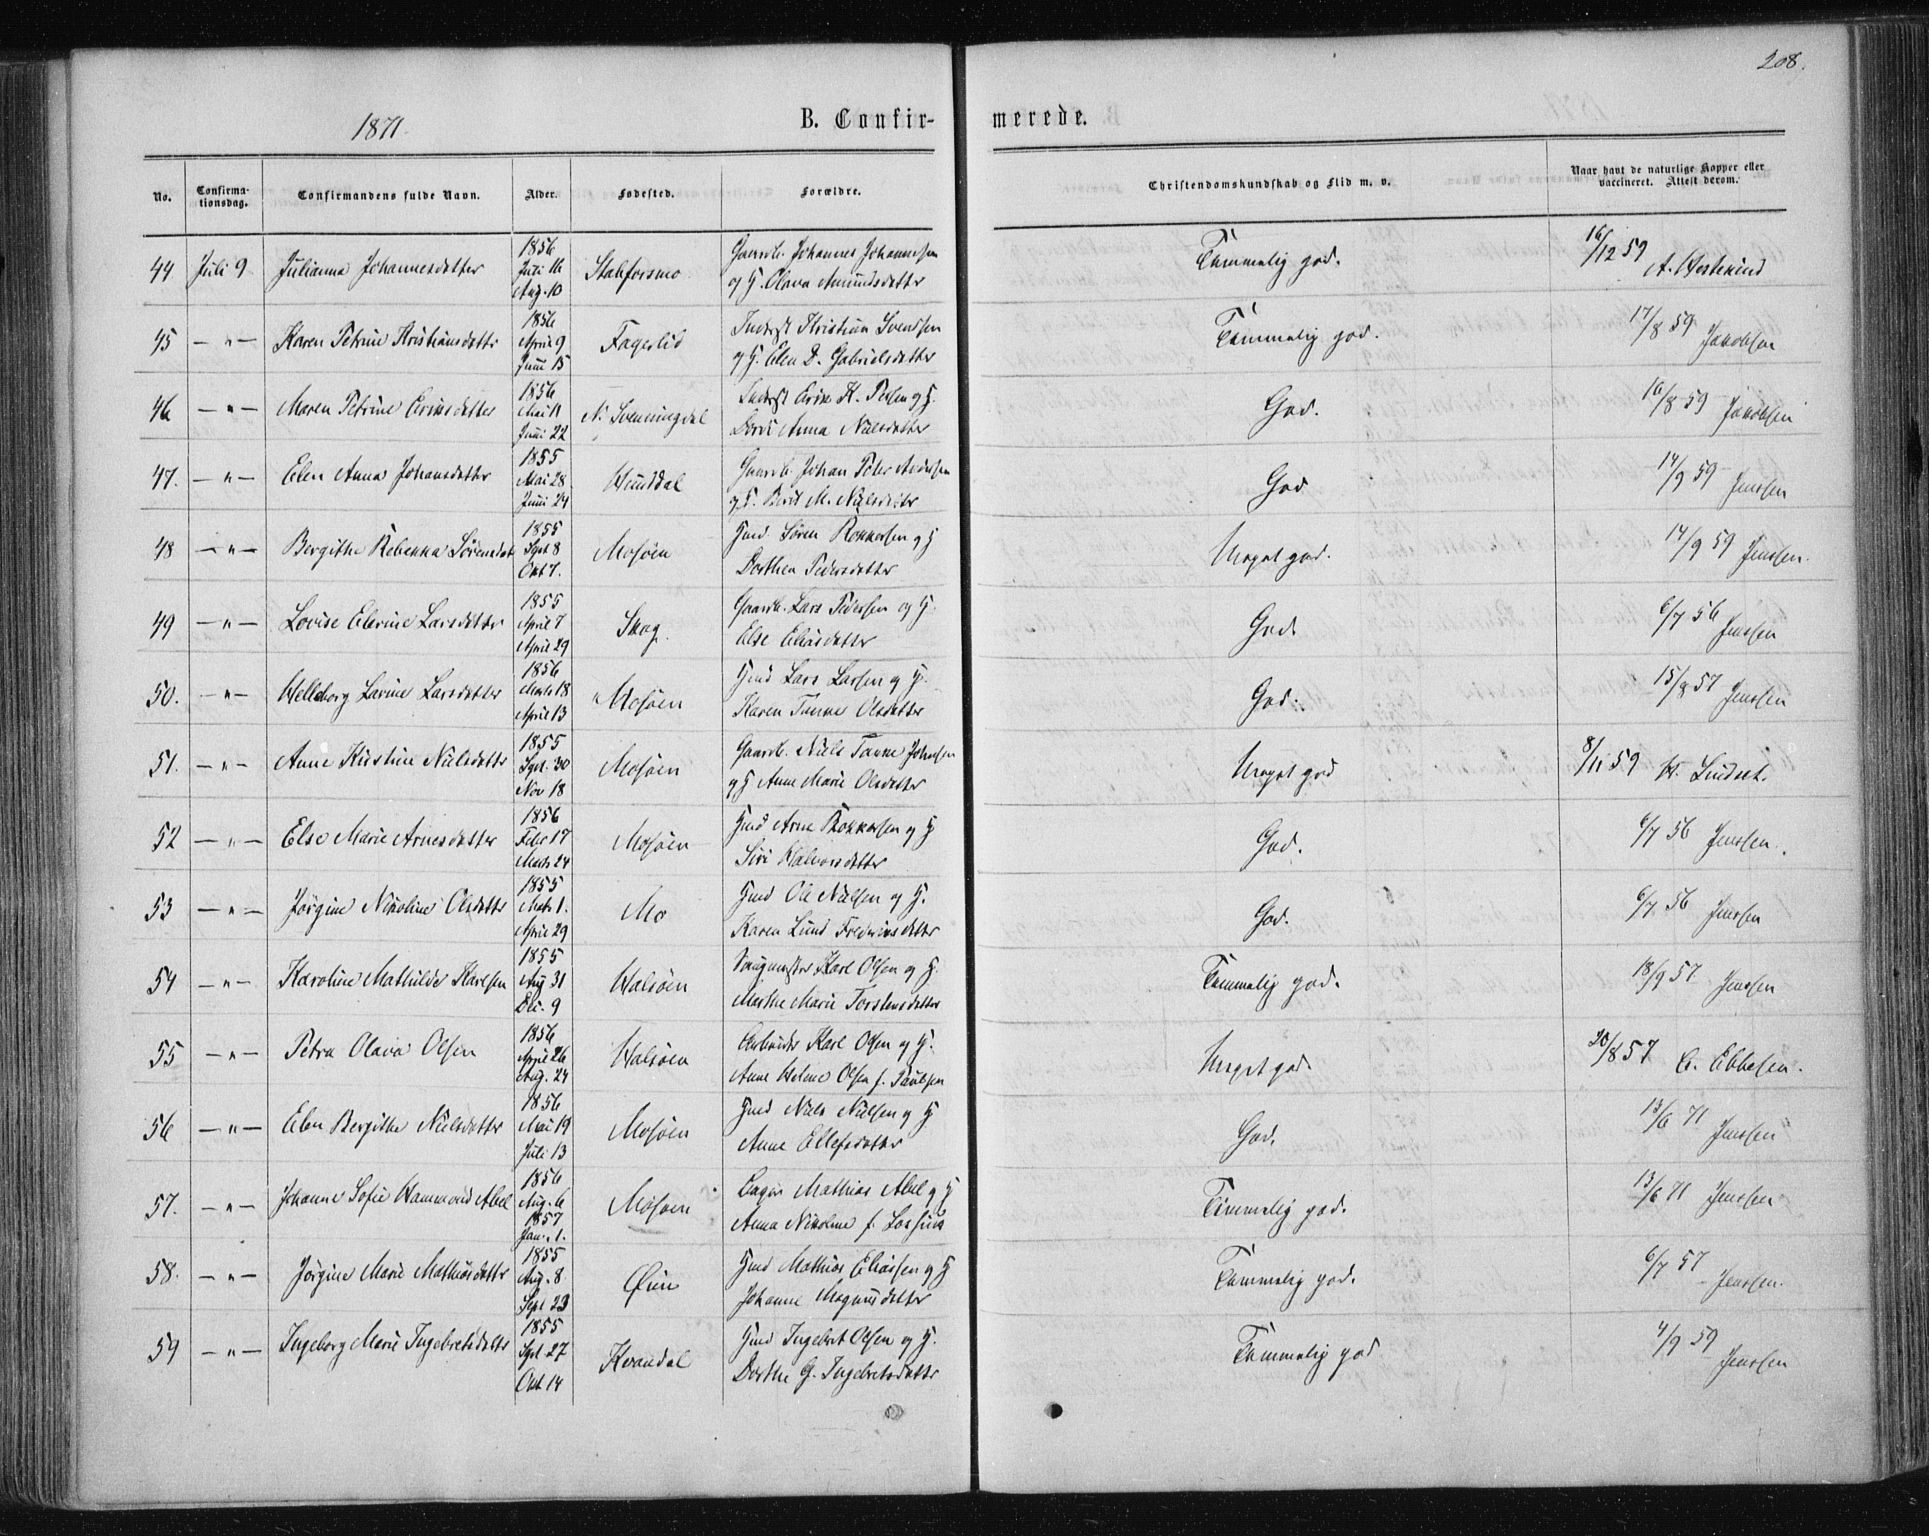 208.
1871.
B. Confir-
merede.
No.
Confirma-
tionsdag.
Confirmandens fulde Navn.
Alder.
Fødested.
Forældre.
Christendomskundskab og Flid m. v.
Naar havt de naturlige Kopper eller
vaccineret. Attest derom.
44 Juli 9 Julianna Johannesdatter 1856 Juli 16 Aug. 10 Stabforsmo Gaardb. Johannes Johannesen og H. Olava Amundsdatter Temmelig god. 16/12 59
45 — " — Karen Petrine Kristiansdattr 1856 April 9 Juni 15 Fageslid Inderst Kristian Svendsen og H. Elen D. Gabrielsdatter Temmelig god. 17/8 59 Jakobsen
46 — " — Maren Petrine Eriksdatter 1856 Mai 11 Juni 22 N. Svenningdal Inderst Erik K. og H. Anna Nielsdatter God. 16/8 59 Jakobsen
47. — " — Elen Anna Johansdatter 1855 Mai 28 Juni 24 Hunddal Gaardb. Johan Peter Andersen og H. Berit M. Nielsdatter God 14/9 59 Jenssen
48 — " — Bergithe Rebekka Sørensdat 1855 Sept 8 Okt 7. Mosøen Hmd. Søren Rokkersen og H Dorthea Pedersdatter Meget god. 14/9 59 Jenssen.
49 — " — Lovise Elerine Larsdatter 1855 April 7 April 29 Skog. Gaardb. Lars Pedersen og H. Else Eliasdatter God. 6/7 56 Jenssen
50. — " — Helleborg Larine Larsdatter 1856 Marts 18 April 13 Mosøen Hmd Lars Larsen og H. Karen Olsdatter God. 15/8 57 Jenssen
51. — " — Anne Kristine Nielsdattr 1855 Sept. 30 Nov 18 Mosøen Gaardb. Niels Johnsen og H Anne Marie Olsdatter Meget god 8/11 59 Lindset.
52 — " — Else Marie Arnesdatter 1856 Febr 17 Marts 24 Mosøen Hmd Arne Rokkersen og H Siri Halvorsdatter God. 6/7 56 Jenssen.
53 — " — Jørgine Nikoline Olsdattr 1855 Marts 1. April 29 Mo Hmd Ole Nielsen og H. Karen Lund Frederiksdatter God. 6/7 56 Jenssen
54 — " — Karoline Mathilde Karlsen 1855 Aug 31 Dec. 9 Halsøen Karl Olsen og H. Marthe Marie Torstensdatter Temmelig god. 18/9 57 Jenssen
55 — " — Petra Olava Olsen 1856 April 26 Aug. 24 Halsøen Arbeider Karl Olsen og H. Anne Helene Olsen f. Paulsen Meget god. 20/8 57 C. Ebbesen.
56 — " — Elen Bergithe Nielsdatter 1856 Mai 19 Juli 13 Mosøen Hmd Niels Nielsen og H Anne Ellefsdatter God. 13/6 71 Jenssen
57. — " — Johanne Sofie Hammond Abel 1856 Aug. 6 1857 Jan. 1. Mosøen Mathias Abel og H Anna Nikoline f. Temmelig god. 13/6 71 Jenssen
58. — " — Jørgine Marie Mathiasdattr 1855 Aug. 8 Sept 23 Øien Hmd Mathias Eliassen og H Johanne Magnusdatter Temmelig god. 6/7 57 Jenssen.
59 — " — Ingeborg Marie Ingebretsdattr 1855 Sept 27 Okt 14 Kvandal Hmd Ingebret Olsen og H. Dorthe G. Ingebretsdatter Temmelig god 4/9 59 Jenssen